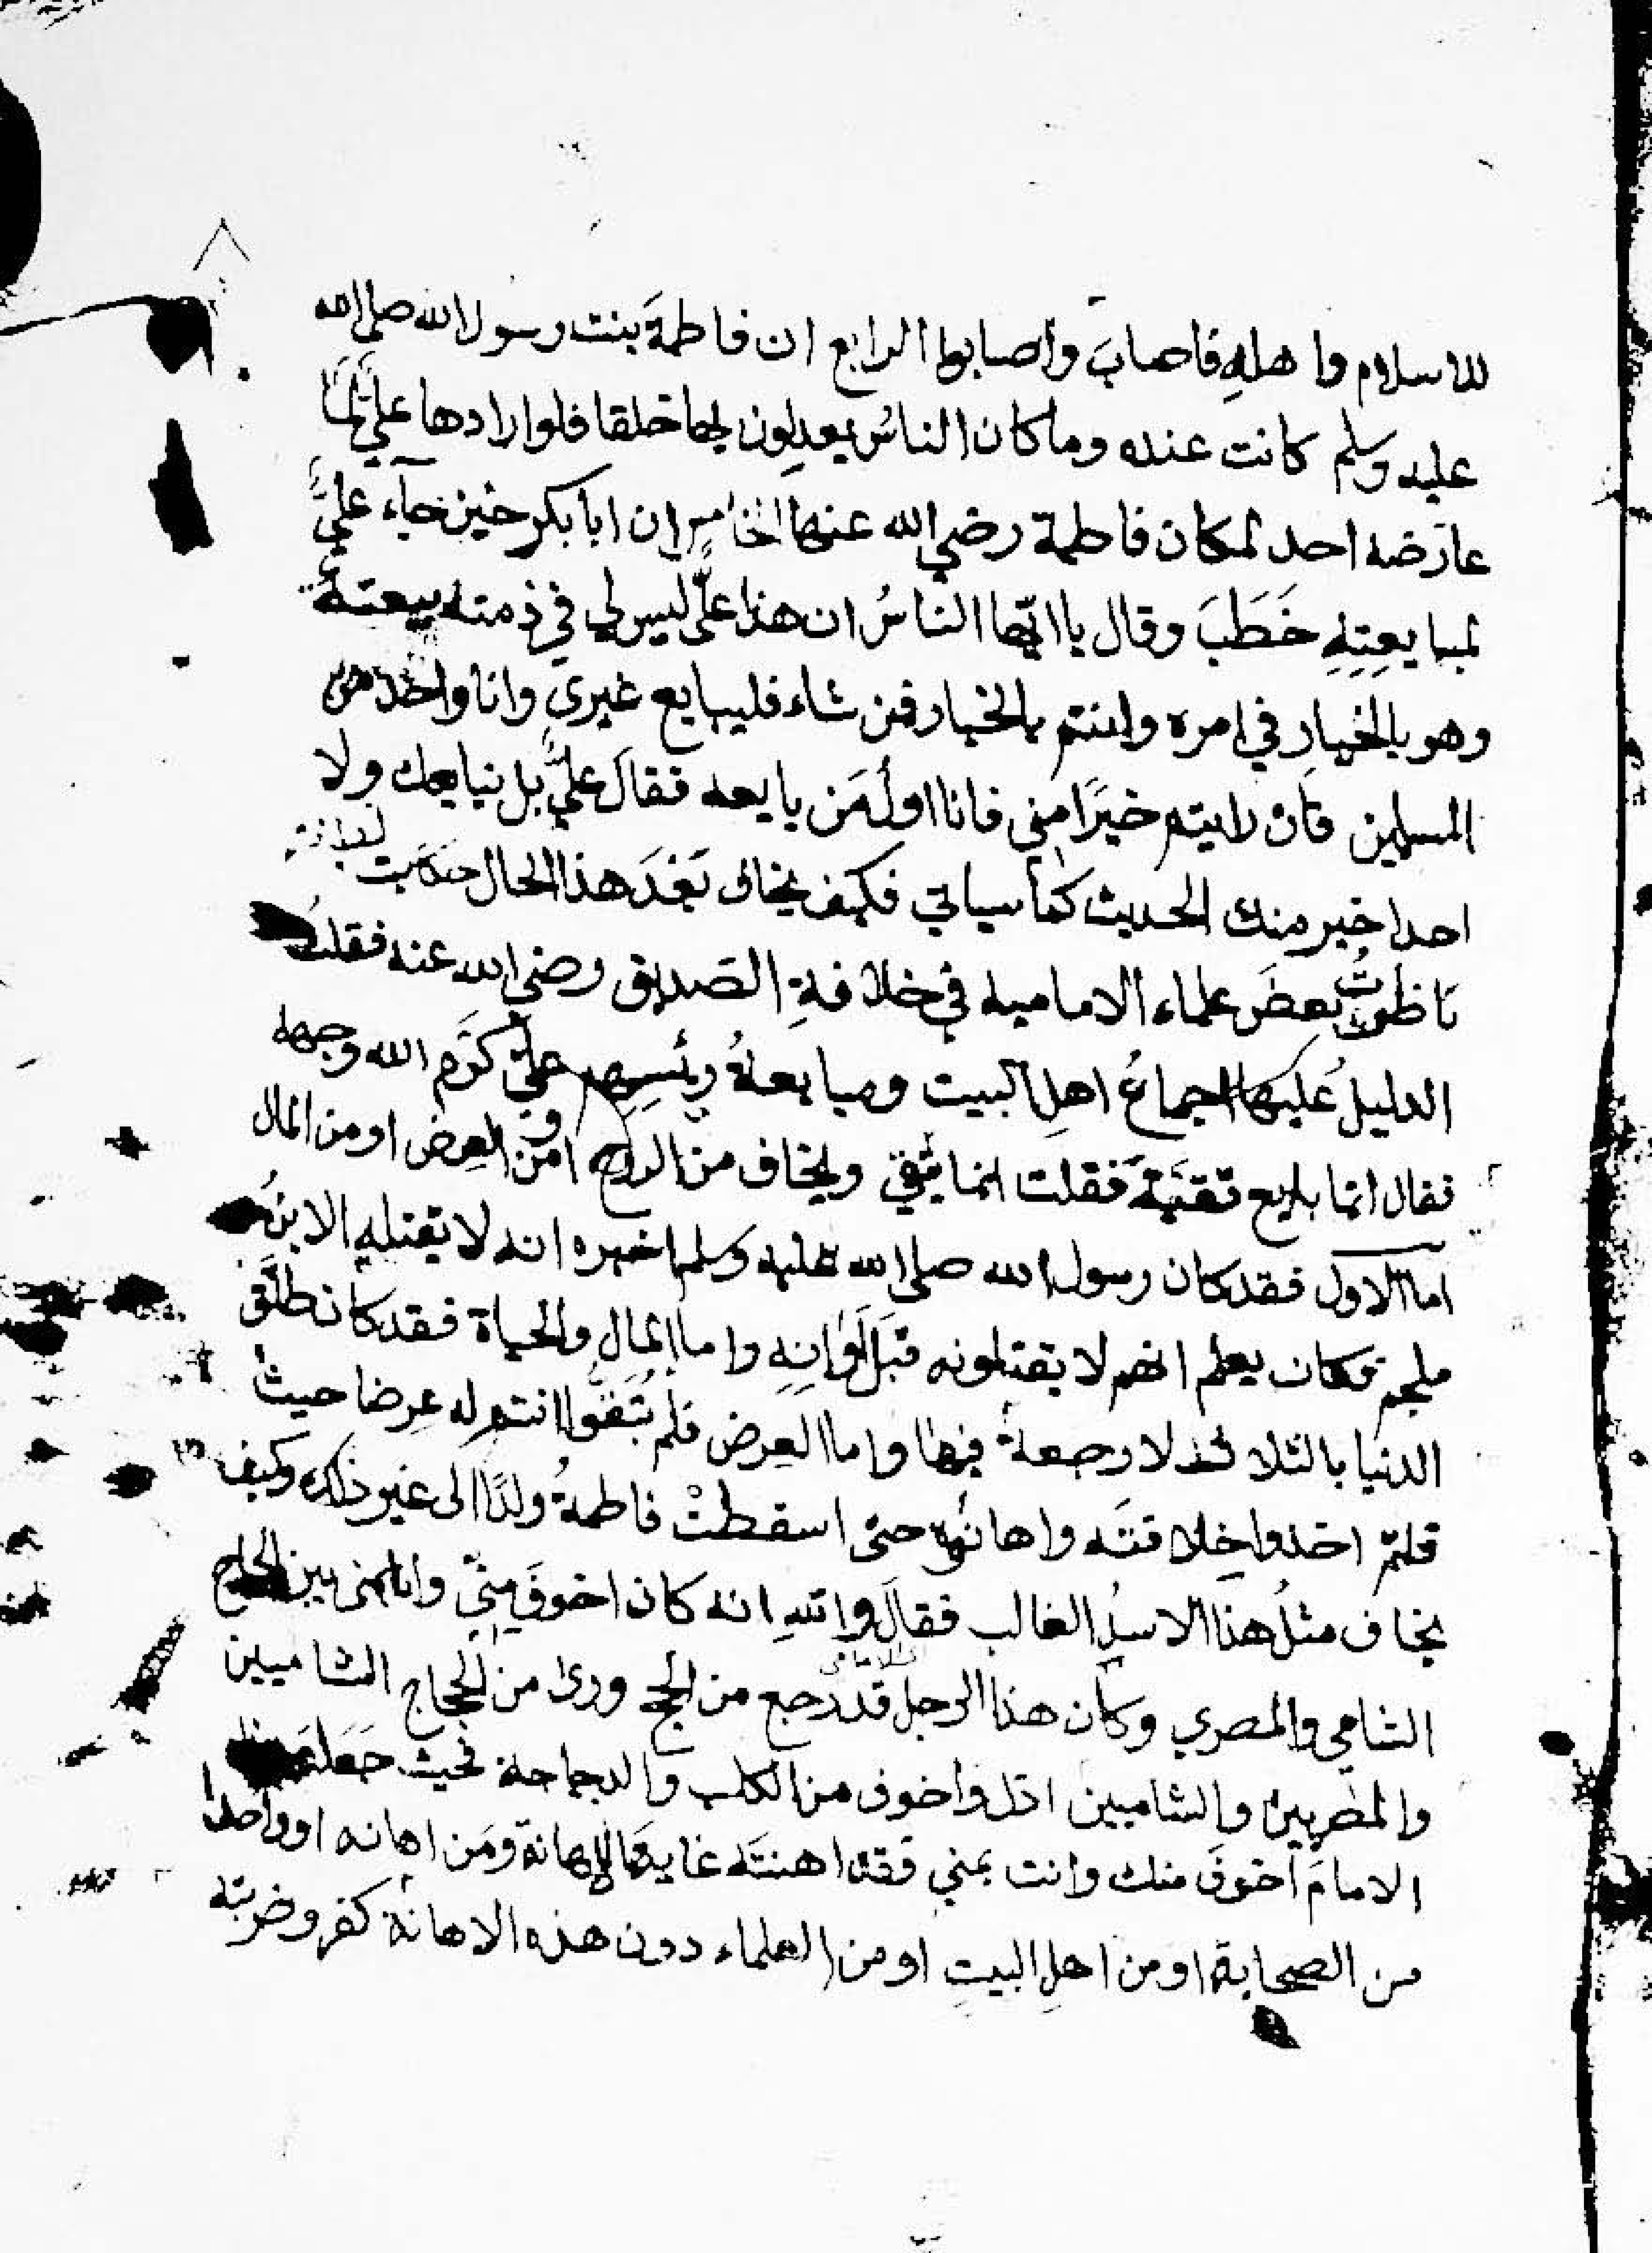 ٨
للاسلام واهله فاصاب واصابوا الرابع ان فاطمة بنت رسول الله صلى الله
عليه وسلم كانت عنده وما كان الناس يعدلون بها خلقا فلو ارادها علي لما
عارضه احد لمكان فاطمة رضي الله عنها الخامس ان ابا بكر حين جآء علي
لمبايعته خطب وقال يا ايها الناس ان هذا علي ليس لي في ذمته بيعته
وهو بالخيار في امره وانتم بالخيار فمن شاء فليبايع غيري وانا واحد من
المسلمين فان رايتم خيرا مني فانا اول من بايعه فقال علي بل نبايعك ولا
احدا خير منك الحديث كما سياتي فكيف يخاف بعد هذا الحال حكايت
ناظرت بعض علماء الاماميه في خلافة الصديق رضي الله عنه فقلت
الدليل عليها اجماع اهل البيت ومبايعة رئيسهم علي كرم الله وجهه
فقال انما بايع تقية فقلت انما يتقي ويخاف من الروح او من العرض او من المال
اما الاول فقد كان رسول الله صلى الله عليه وسلم اخبره انه لا يقتله الا ابن
ملجم فكان يعلم انهم لا يقتلونه قبل اوانه واما المال والحياة فقد كان طلق
الدنيا بالثلاث لا رجعة فيها واما العرض فلم تبقوا انتم له عرضا حيث
قلتم اخذوا خلافته واهانوه حتى اسقطت فاطمة ولدا الى غير ذلك وكيف
يخاف مثل هذا الاسد الغالب فقال والله انه كان اخوف مني وانا بمنى بين الحاج
الشامي والمصري وكان هذا الرجل قد رجع من الحج وراى من الحجاج الشاميين
والمصريين والشاميين اذل واخوف من الكلب والدجاجة فحيث جعلت
الامام اخوف منك وانت بمنى فقد اهنته غاية الاهانة ومن اهانه او واحدا
من الصحابة او من اهل البيت او من العلماء دون هذه الاهانة كفر وضربته